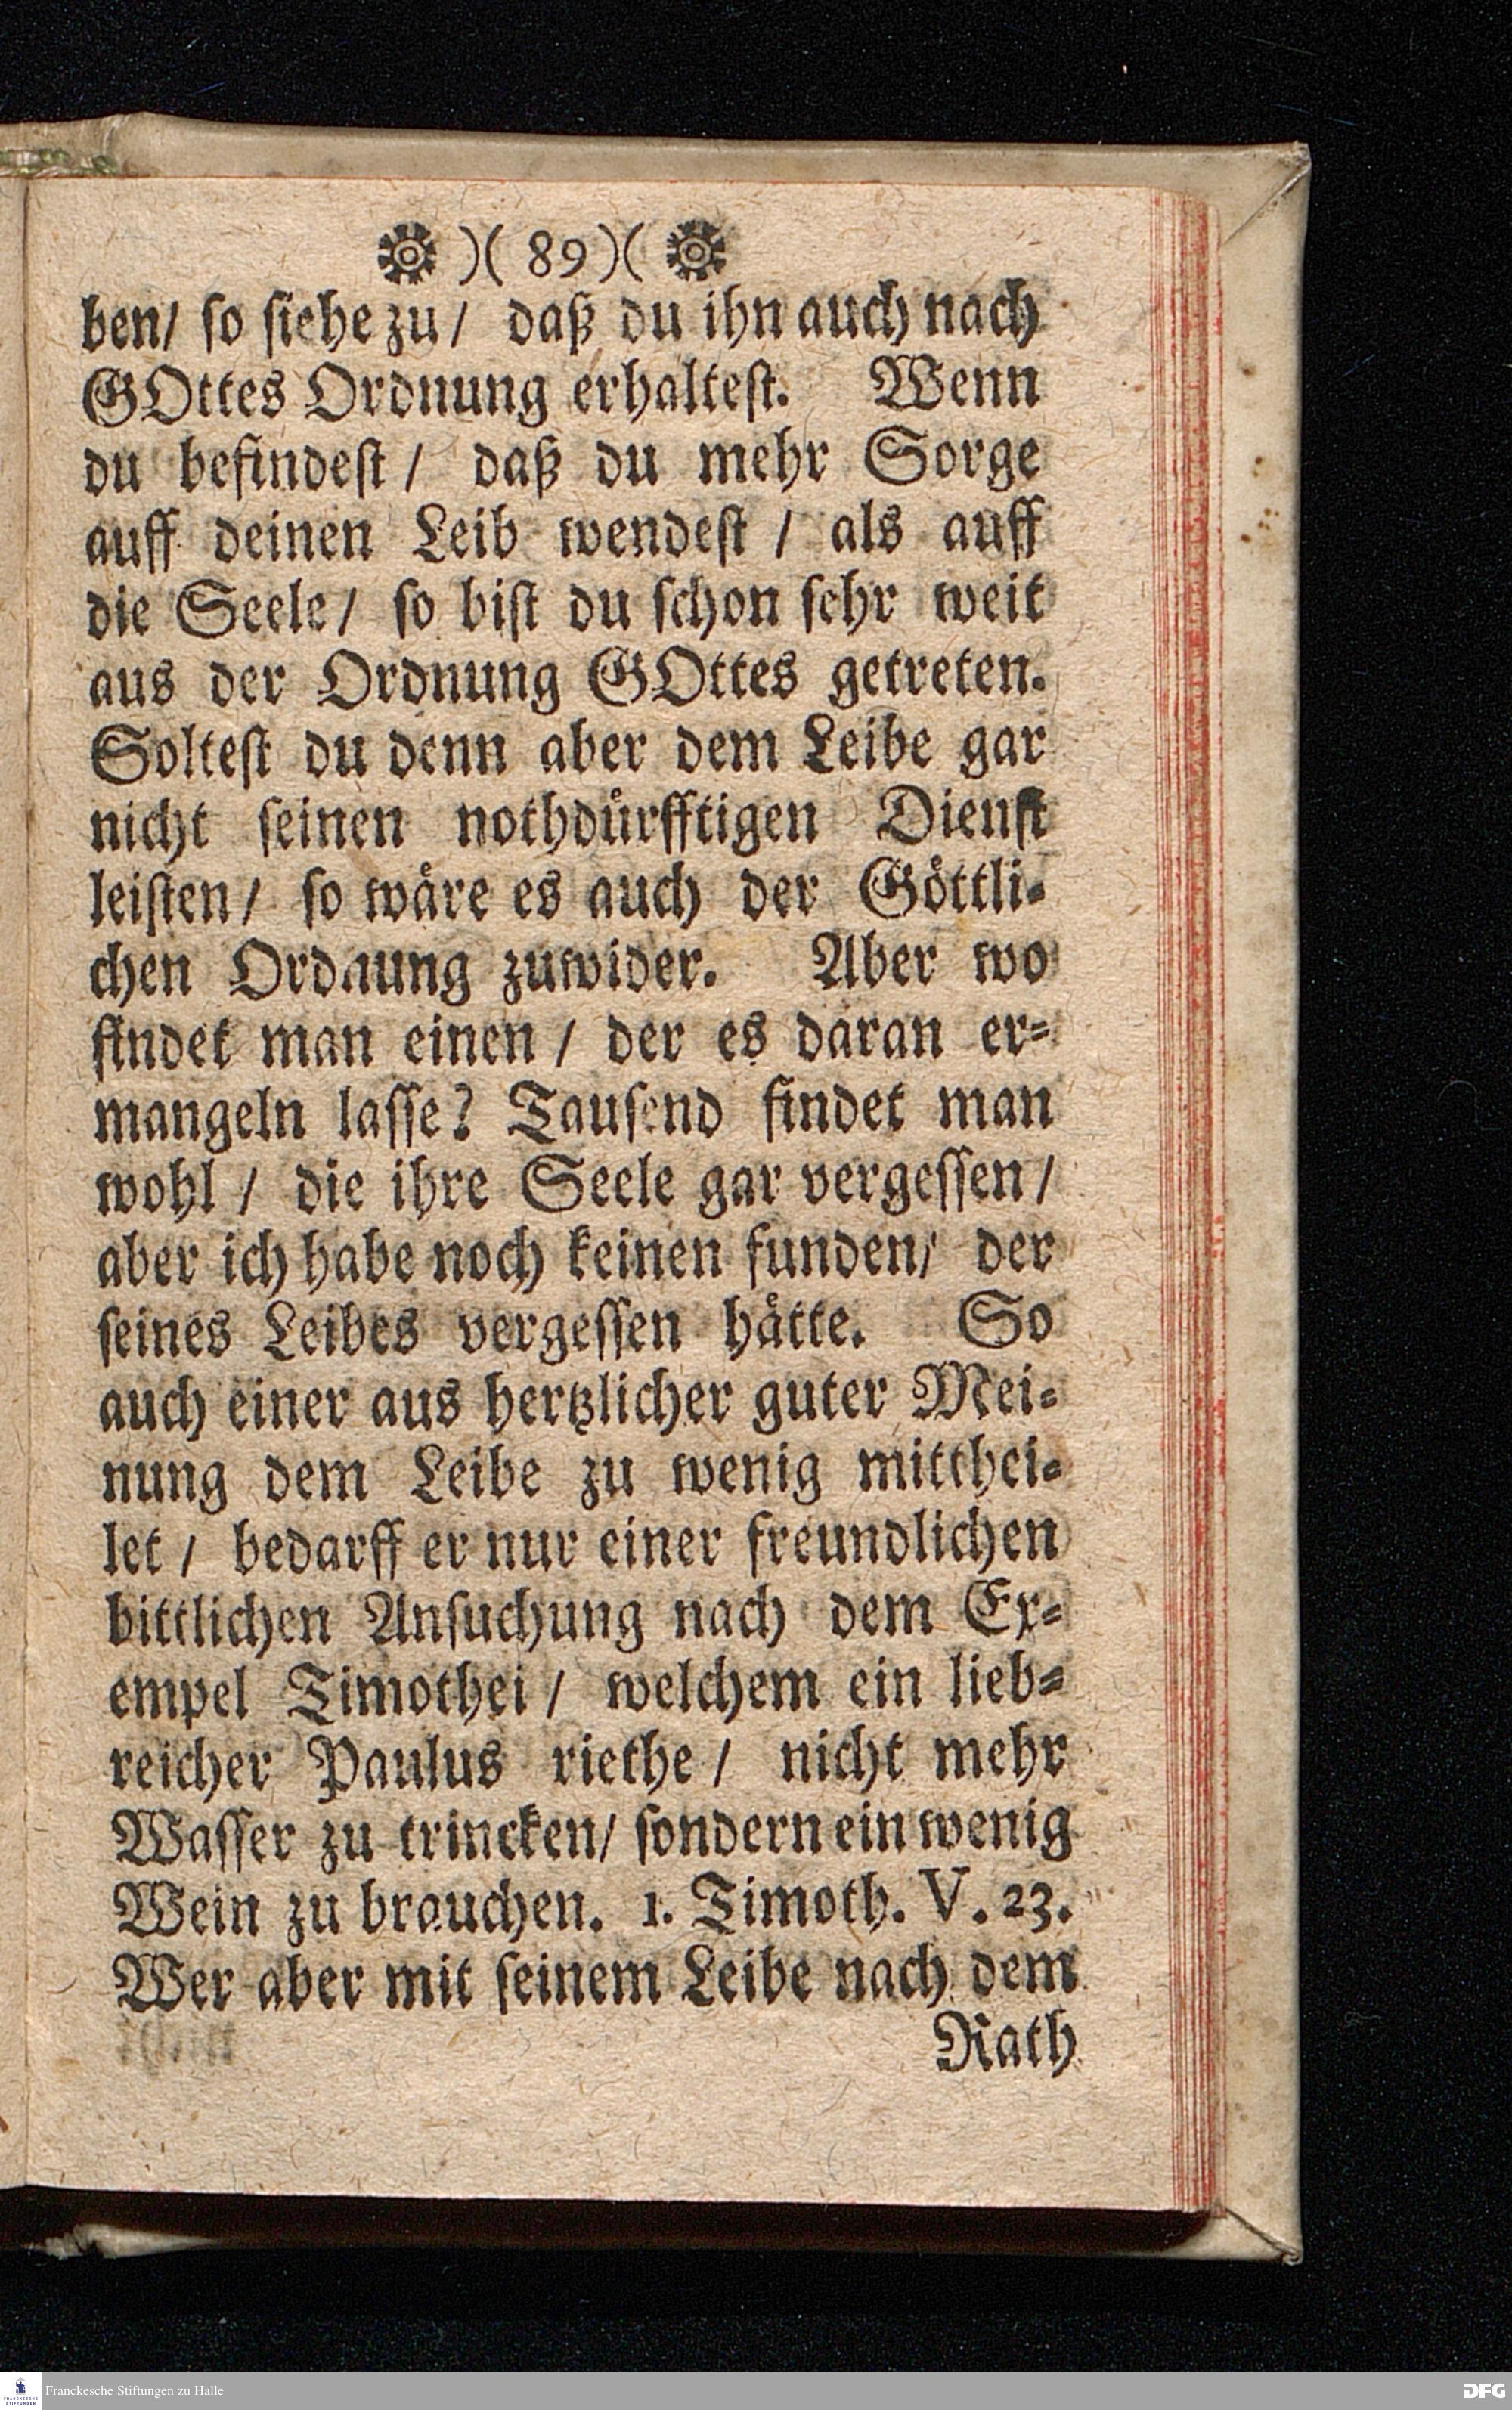 )( 89 )(
ben/ so siehe zu/ daß du ihn auch nach
GOttes Ordnung erhaltest. Wenn
du befindest/ daß du mehr Sorge
auff deinen Leib wendest / als auff
die Seele/ so bist du schon sehr weit
aus der Ordnung GOttes getreten.
Soltest du denn aber dem Leibe gar
nicht seinen nothdürfftigen Dienst
leisten/ so wäre es auch der Göttli-
chen Ordnung zuwider. Aber wo
findet man einen / der es daran er-
mangeln lasse? Tausend findet man
wohl / die ihre Seele gar vergessen/
aber ich habe noch keinen funden/ der
seines Leibes vergessen hätte. So
auch einer aus hertzlicher guter Mei-
nung dem Leibe zu wenig mitthei-
let / bedarff er nur einer freundlichen
bittlichen Ansuchung nach dem Ex-
empel Timothei / welchem ein lieb-
reicher Paulus riethe / nicht mehr
Wasser zu trincken/ sondern ein wenig
Wein zu brauchen. 1. Timoth. V. 23.
Wer aber mit seinem Leibe nach dem
Rath
Franckesche Stiftungen zu Halle
DFG